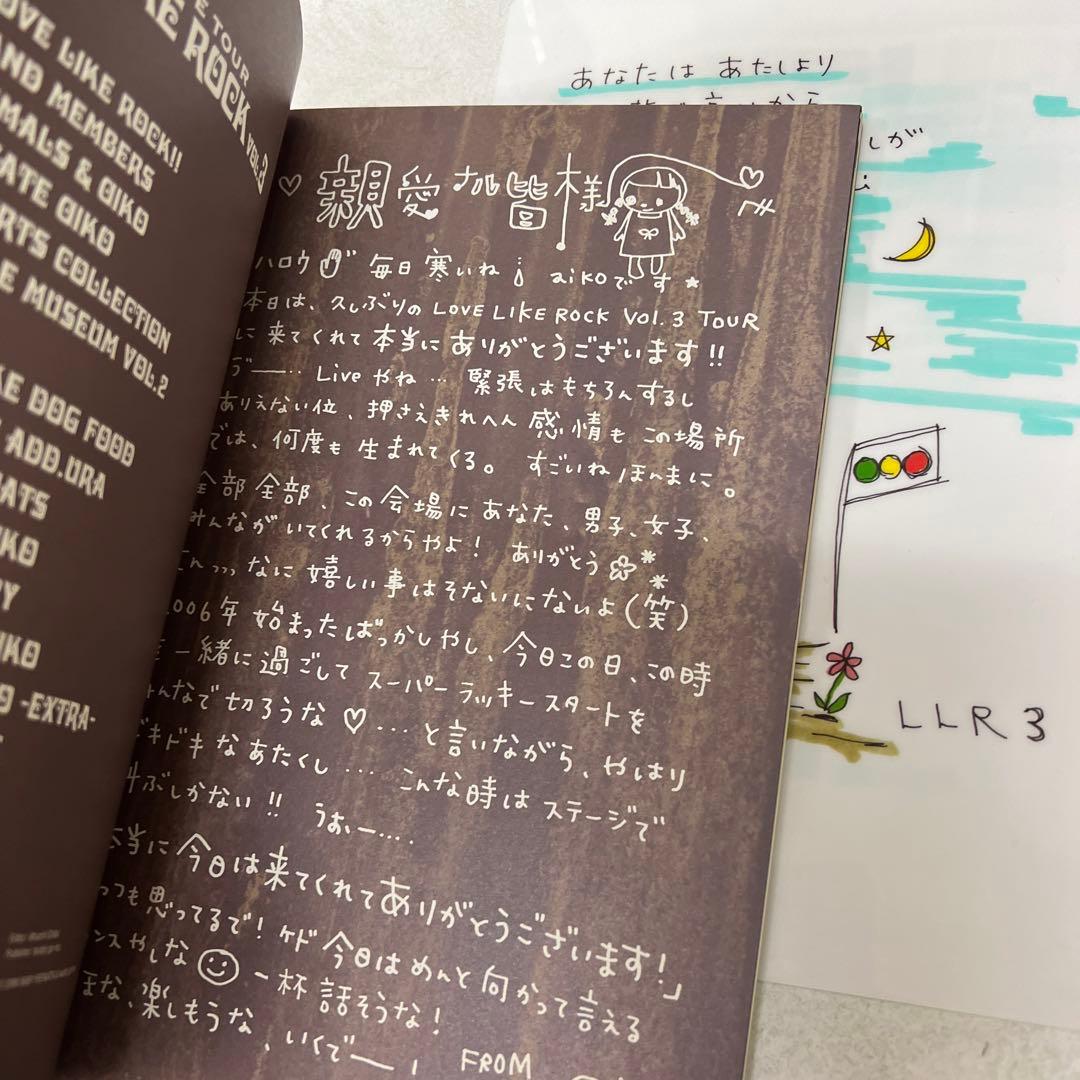 E TOUR
KE ROCK VOL.3
OVE LIKE ROCK!!
AND MEMBERS
MALS & OIKO
ATE OIKO
RTS COLLECTION
E MUSEUM VOL.2
KE DOG FOOD
ADD.URA
CATS
IKO
RY
IKO
9 -EXTRA-
♡ 親愛なる皆様
ハロウ 毎日寒いね¡ aikoです★
本日は、久しぶりの LOVE LIKE ROCK Vol.3 TOUR
に来てくれて本当にありがとうございます!!
ー‥ Liveやね… 緊張はもちろんするし
ありえない位、押さえきれへん感情もこの場所
では、何度も生まれてくる。 すごいねほんまに。
全部全部、この会場にあなた、男子、女子、
みんながいてくれるからやよ! ありがとう
こんっっっなに嬉しい事はそないにないよ(笑)
2006年始まったばっかしやし、今日この日、この時
を一緒に過ごしてスーパーラッキースタートを
みんなで切ろうな♡… と言いながら、やはり
ドキドキなあたくし… こんな時はステージで
叫ぶしかない!! うおー…
本当に今日は来てくれてありがとうございます!」
いっつも思ってるで! ケド今日はめんと向かって言える
ンスやしな 一杯話そうな!
ほな、楽しもうな、いくでーー!
FROM
あなたは あたしより
しが
LLR3